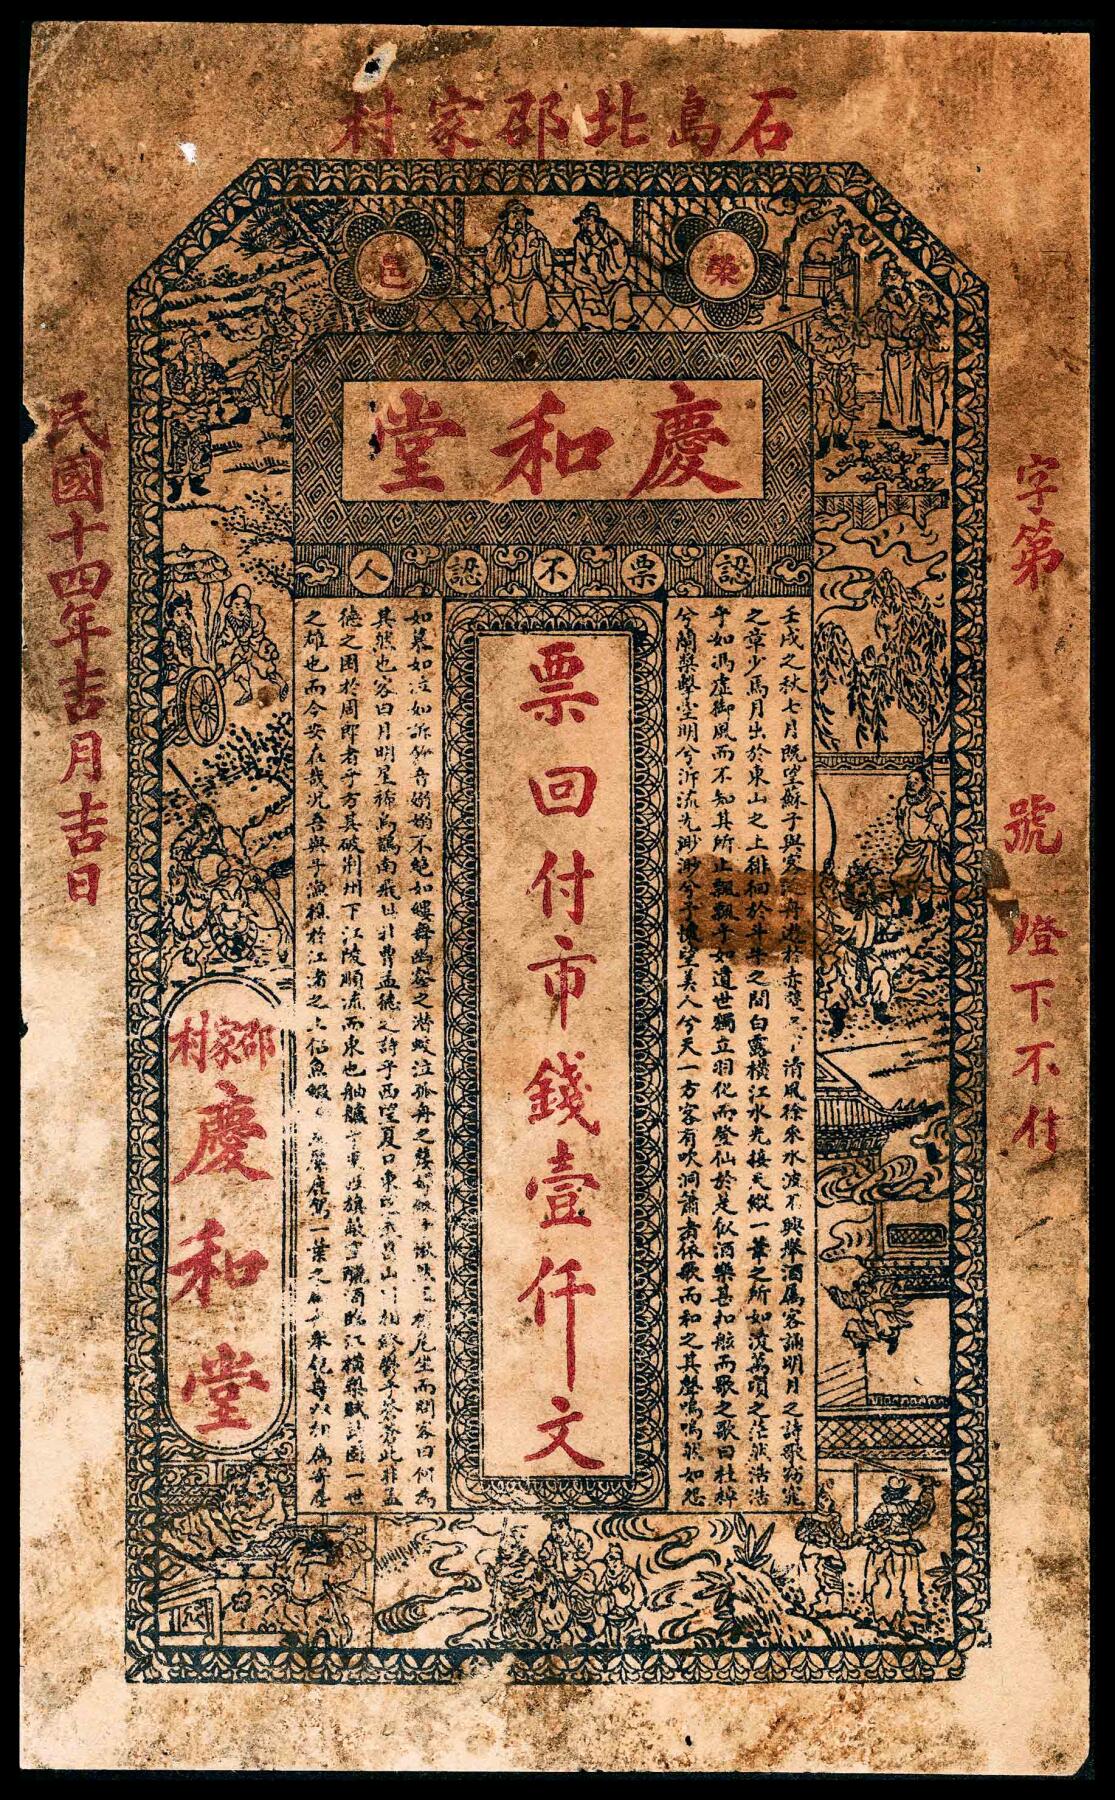 石島北邵家村
榮邑
慶和堂
認票不認人
字第 號 燈下不付
壬戌之秋七月既望蘇子與客 舟遊於赤壁 清風徐來水波不興舉酒屬客誦明月之詩歌窈窕
之章少焉月出於東山之上徘徊於斗牛之間白露橫江水光接天縱一葦之所如凌萬頃之茫然浩浩
乎如馮虛御風而不知其所止飄飄乎如遺世獨立羽化而登仙於是飲酒樂甚扣舷而歌之歌曰桂棹
兮蘭槳擊空明兮泝流光渺渺兮予懷望美人兮天一方客有吹洞簫者依歌而和之其聲嗚嗚然如怨
票回付市錢壹仟文
如慕如泣如訴餘音嫋嫋不絕如縷舞幽壑之潛蛟泣孤舟之嫠婦蘇子愀然 危坐而問客曰何為
其然也客曰月明星稀烏鵲南飛此非曹孟德之詩乎西望夏口東望武昌山川相繆鬱乎蒼蒼此非孟
德之困於周郎者乎方其破荊州下江陵順流而東也舳艫千里旌旗蔽空釃酒臨江橫槊賦詩固一世
之雄也而今安在哉況吾與子漁樵於江渚之上侶魚鰕 麋鹿駕一葉之 舟舉匏尊以相屬寄
邵家村
慶和堂
民國十四年吉月吉日